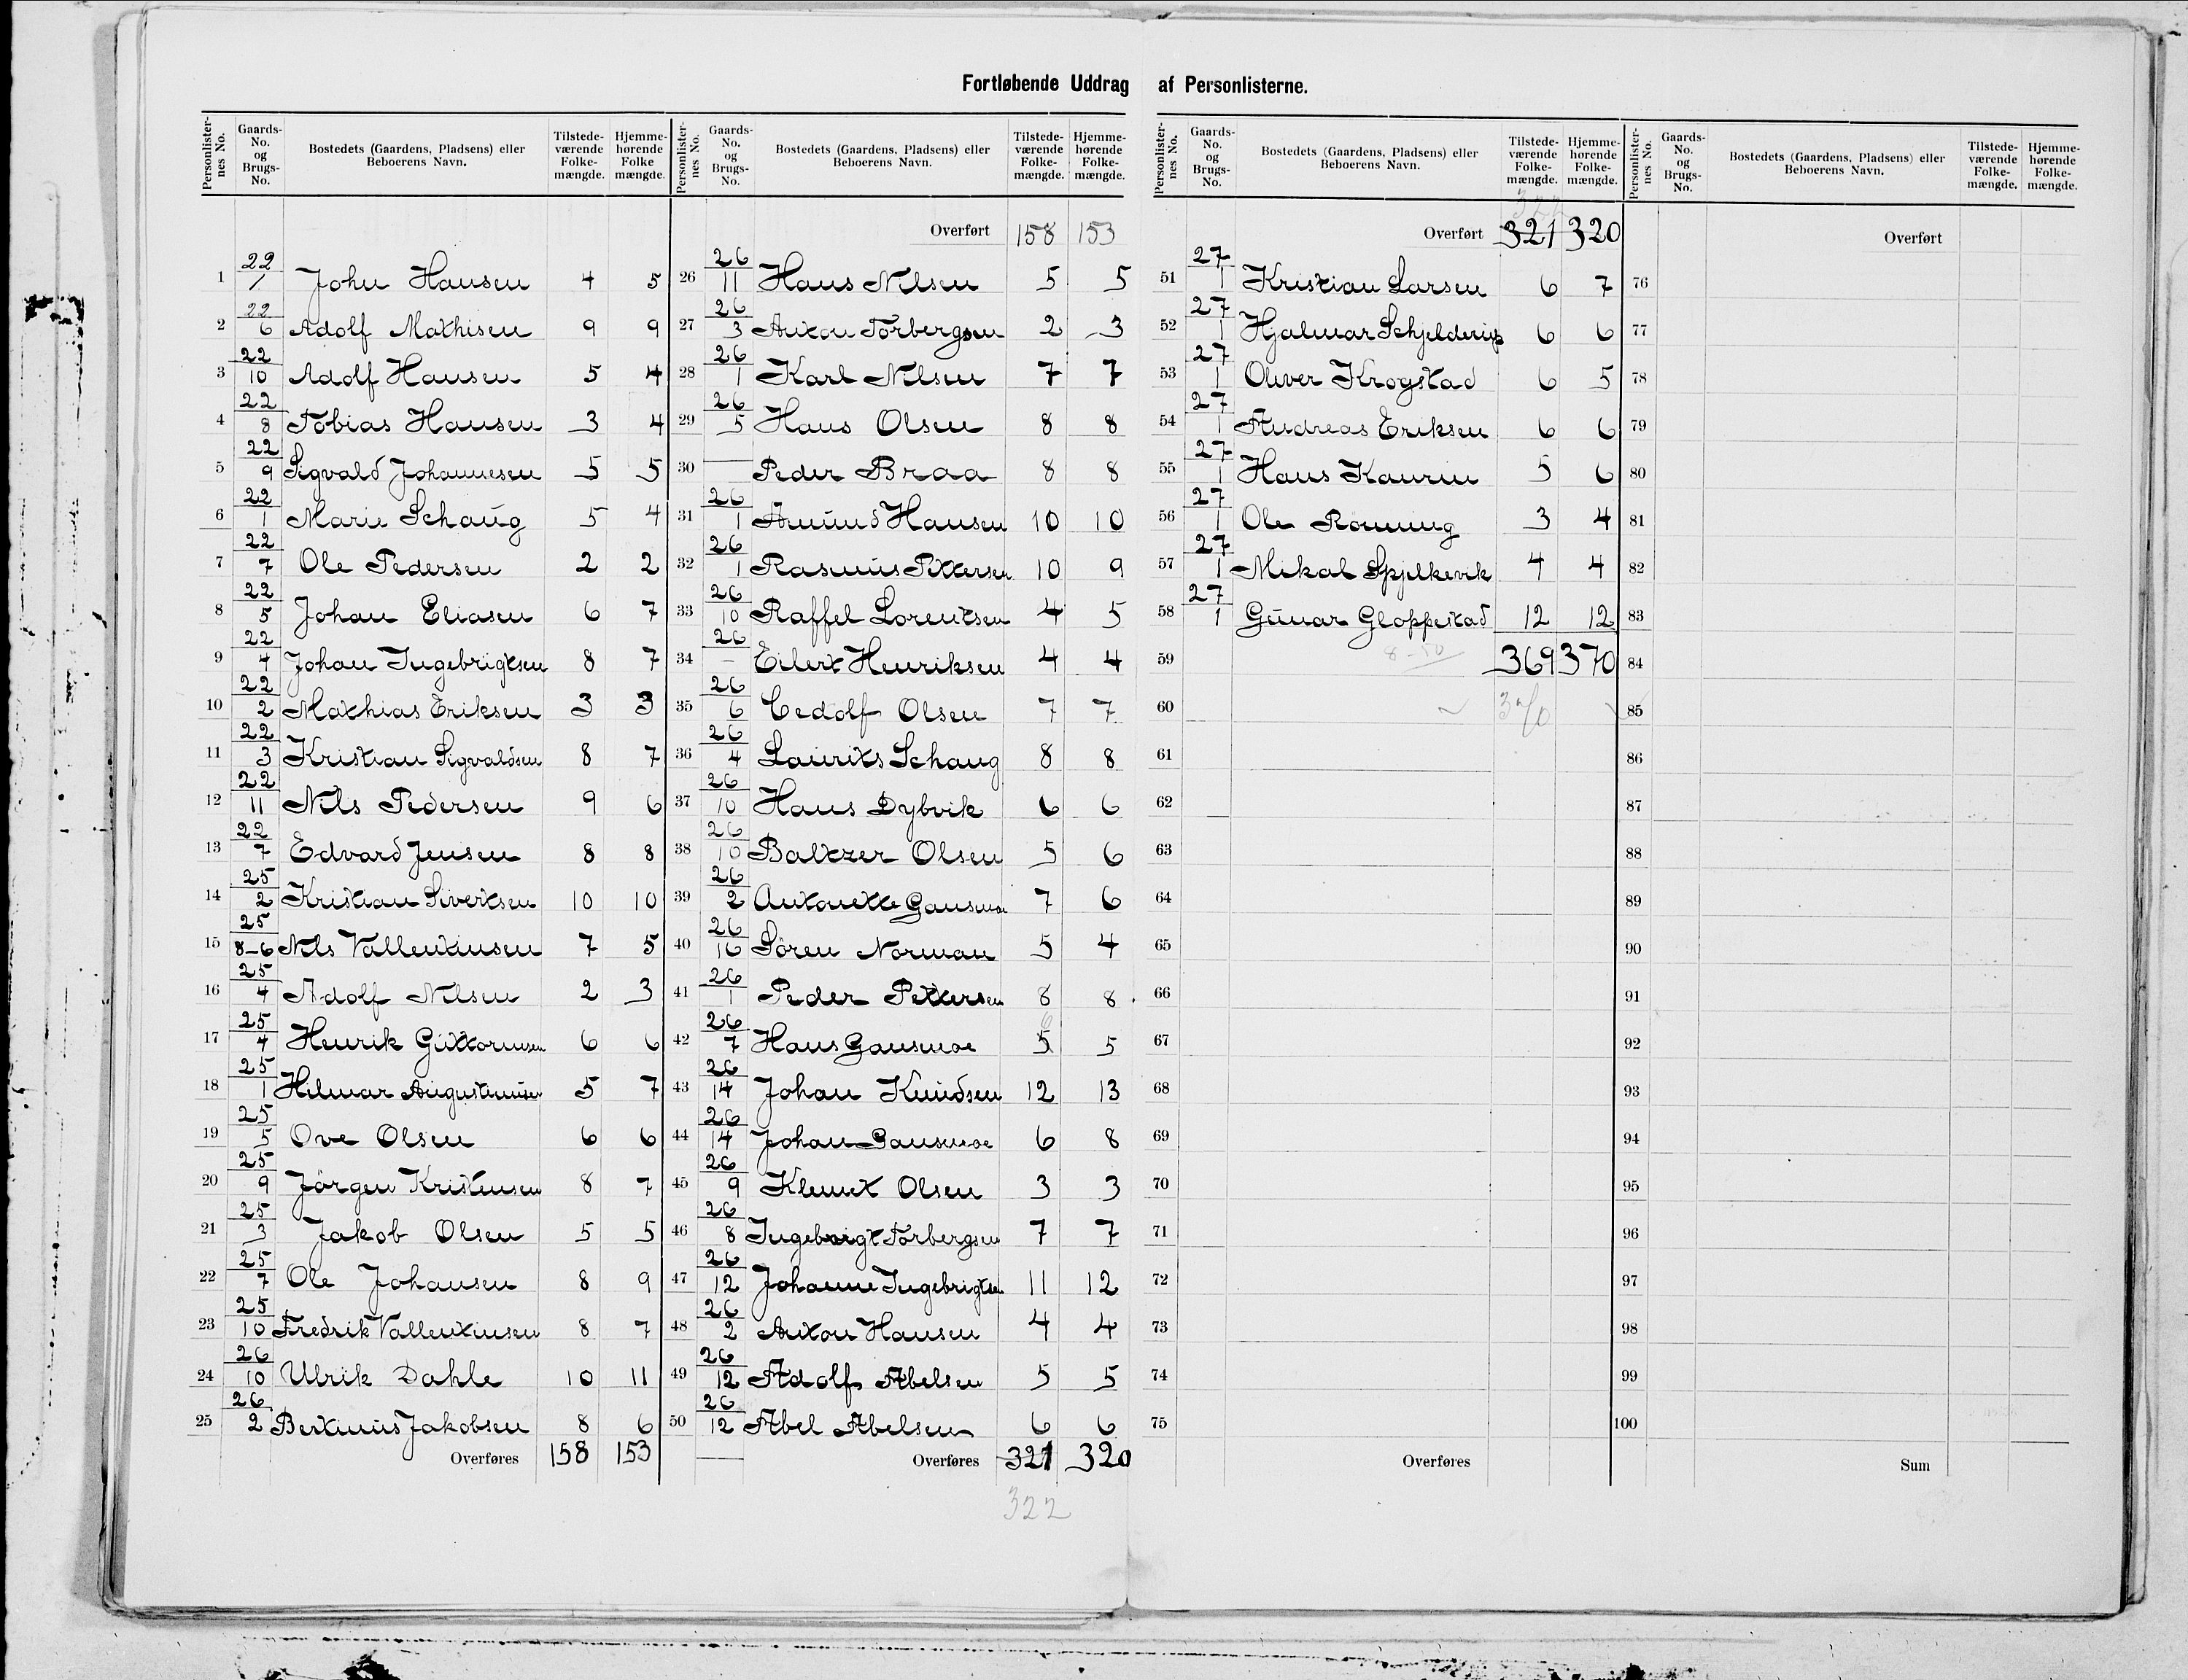 Fortløbende Uddrag af Personlisterne.
Personlister-nes No. | Gaards-No. og Brugs-No. | Bostedets (Gaardens, Pladsens) eller Beboerens Navn. | Tilstede-værende Folke-mængde. | Hjemme-hørende Folke mængde.
1 22/1 John Hansen 4 5
2 22/6 Adolf Mathisen 9 9
3 22/10 Adolf Hansen 5 4
4 22/8 Tobias Hansen 3 4
5 22/9 Sigvald Johannesen 5 5
6 22/1 Marie Schaug 5 4
7 22/7 Ole Pedersen 2 2
8 22/5 Johan Eliasen 6 7
9 22/4 Johan Ingebrigtsen 8 7
10 22/2 Mathias Eriksen 3 3
11 22/3 Kristian Sigvaldsen 8 7
12 22/11 Nils Pedersen 9 6
13 22/7 Edvard Jensen 8 8
14 25/2 Kristian Sivertsen 10 10
15 25/8-6 Nils Vallentinsen 7 5
16 25/4 Adolf Nilsen 2 3
17 25/4 Henrik Guttormsen 6 6
18 25/1 Hilmar Augustinusen 5 7
19 25/5 Ove Olsen 6 6
20 25/9 Jørgen Kristensen 8 7
21 25/3 Jakob Olsen 5 5
22 25/7 Ole Johansen 8 9
23 25/10 Fredrik Vallentinsen 8 7
24 26/10 Ulrik Dahle 10 11
25 26/2 Bertinus Jakobsen 8 6
Overføres 158 153
Personlister-nes No. | Gaards-No. og Brugs-No. | Bostedets (Gaardens, Pladsens) eller Beboerens Navn. | Tilstede-værende Folke-mængde. | Hjemme-hørende Folke-mængde.
Overført 158 153
26 26/11 Hans Nilsen 5 5
27 26/3 Anton Torbergsen 2 3
28 26/1 Karl Nilsen 7 7
29 26/5 Hans Olsen 8 8
30 — Peder Braa 8 8
31 26/1 Amund Hansen 10 10
32 26/1 Rasmus Pettersen 10 9
33 26/10 Raffel Lorentsen 4 5
34 26/— Eilert Henriksen 4 4
35 26/6 Cedolf Olsen 7 7
36 26/4 Laurits Schaug 8 8
37 26/10 Hans Dybvik 6 6
38 26/10 Baltzer Olsen 5 6
39 26/2 Antonette Gausmoe 7 6
40 26/16 Søren Norman 5 4
41 26/1 Peder Pettersen 8 8
42 26/7 Hans Gausmoe 5 5
43 26/14 Johan Knudsen 12 13
44 26/14 Johan Gausmoe 6 8
45 26/9 Klemet Olsen 3 3
46 26/8 Ingebrigt Torbergsen 7 7
47 26/12 Johanne Ingebrigtsen 11 12
48 26/2 Anton Hansen 4 4
49 26/12 Adolf Abelsen 5 5
50 26/12 Abel Abelsen 6 6
Overføres 321 320
322
Personlister-nes No. | Gaards-No. og Brugs-No. | Bostedets (Gaardens, Pladsens) eller Beboerens Navn. | Tilstede-værende Folke-mængde. | Hjemme-hørende Folke-mængde.
322
Overført 321 320
51 27/1 Kristian Larsen 6 7
52 27/1 Hjalmar Schjelderup 6 6
53 27/1 Oliver Krogstad 6 5
54 27/1 Andreas Eriksen 6 6
55 27/1 Hans Kaurin 5 6
56 27/1 Ole Rønning 3 4
57 27/1 Mikal Spjelkevik 4 4
58 27/1 Gunar Gloppestad 12 12
59 369 370
60 370
61
62
63
64
65
66
67
68
69
70
71
72
73
74
75
Overføres
Personlister-nes No. | Gaards-No. og Brugs-No. | Bostedets (Gaardens, Pladsens) eller Beboerens Navn. | Tilstede-værende Folke-mængde. | Hjemme-hørende Folke-mængde.
Overført
76
77
78
79
80
81
82
83
84
85
86
87
88
89
90
91
92
93
94
95
96
97
98
99
100
Sum